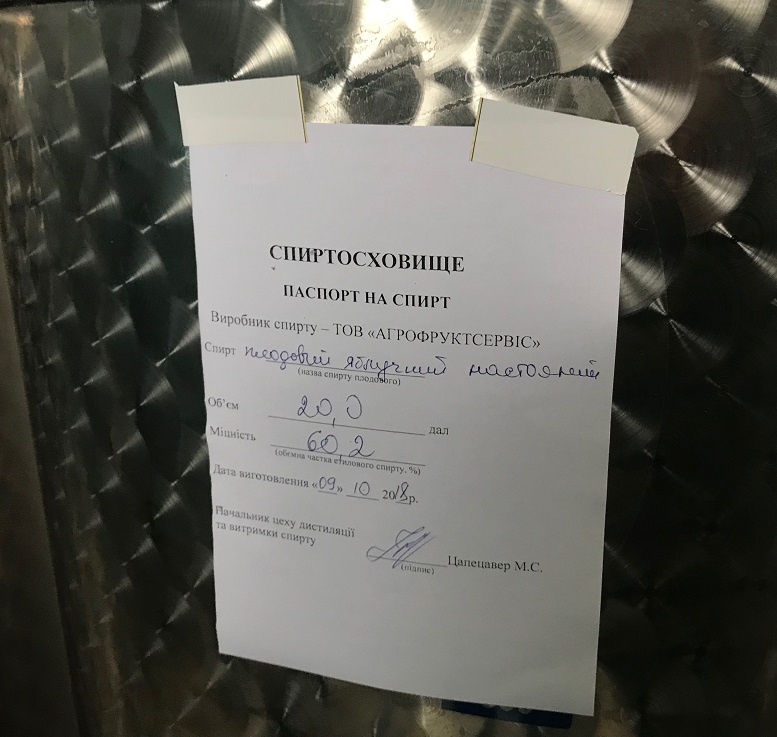 СПИРТОСХОВИЩЕ
ПАСПОРТ НА СПИРТ
Виробник спирту – ТОВ «АГРОФРУКТСЕРВІС»
Спирт плодовий яблучний настояний
(назва спирту плодового)
Об'єм 20,0 дал
Міцність 60,2
(об'ємна частка етилового спирту, %)
Дата виготовлення «09» 10 2018р.
Начальник цеху дистиляції
та витримки спирту
Цапецавер М.С.
(підпис)